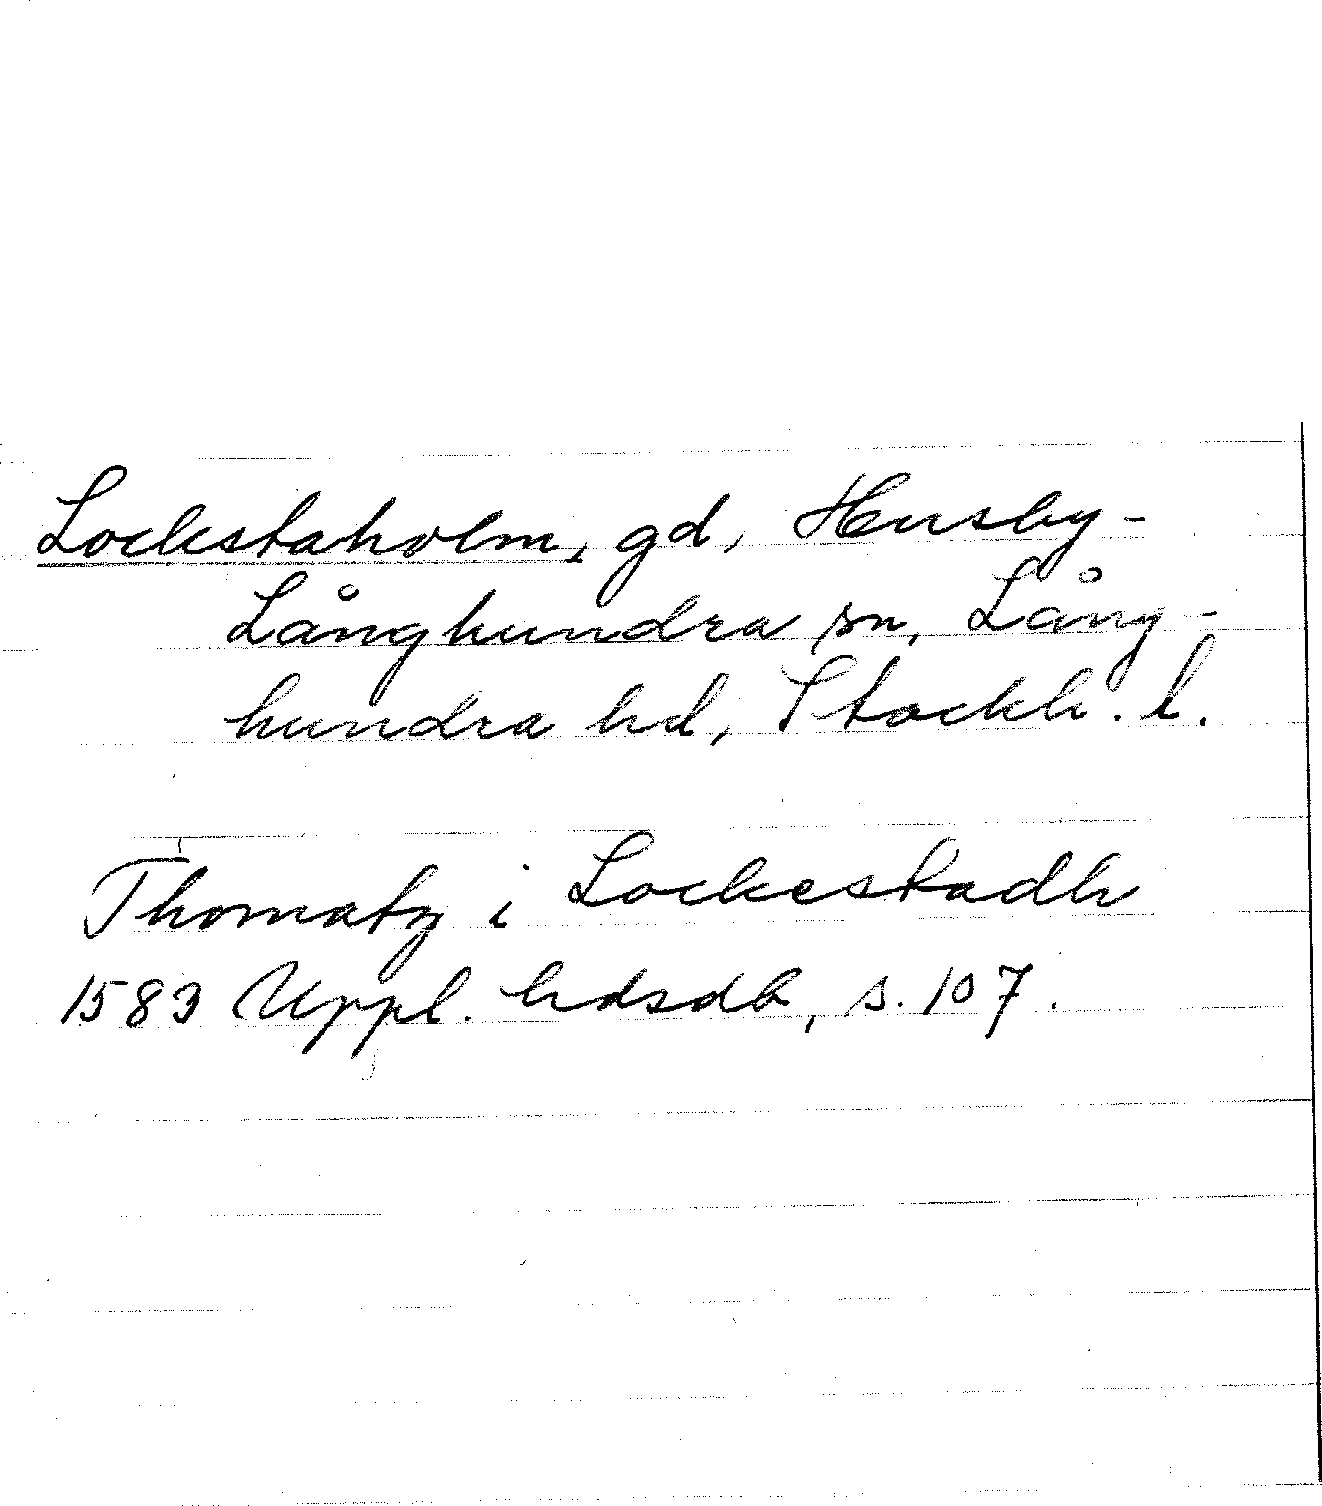 Lockstaholm, gd, Husby-
Långhundra sn, Lång-
hundra hd, Stockh. l.
Thomatz i Lockestadh
1583 Uppl. hdsdb, s. 107.